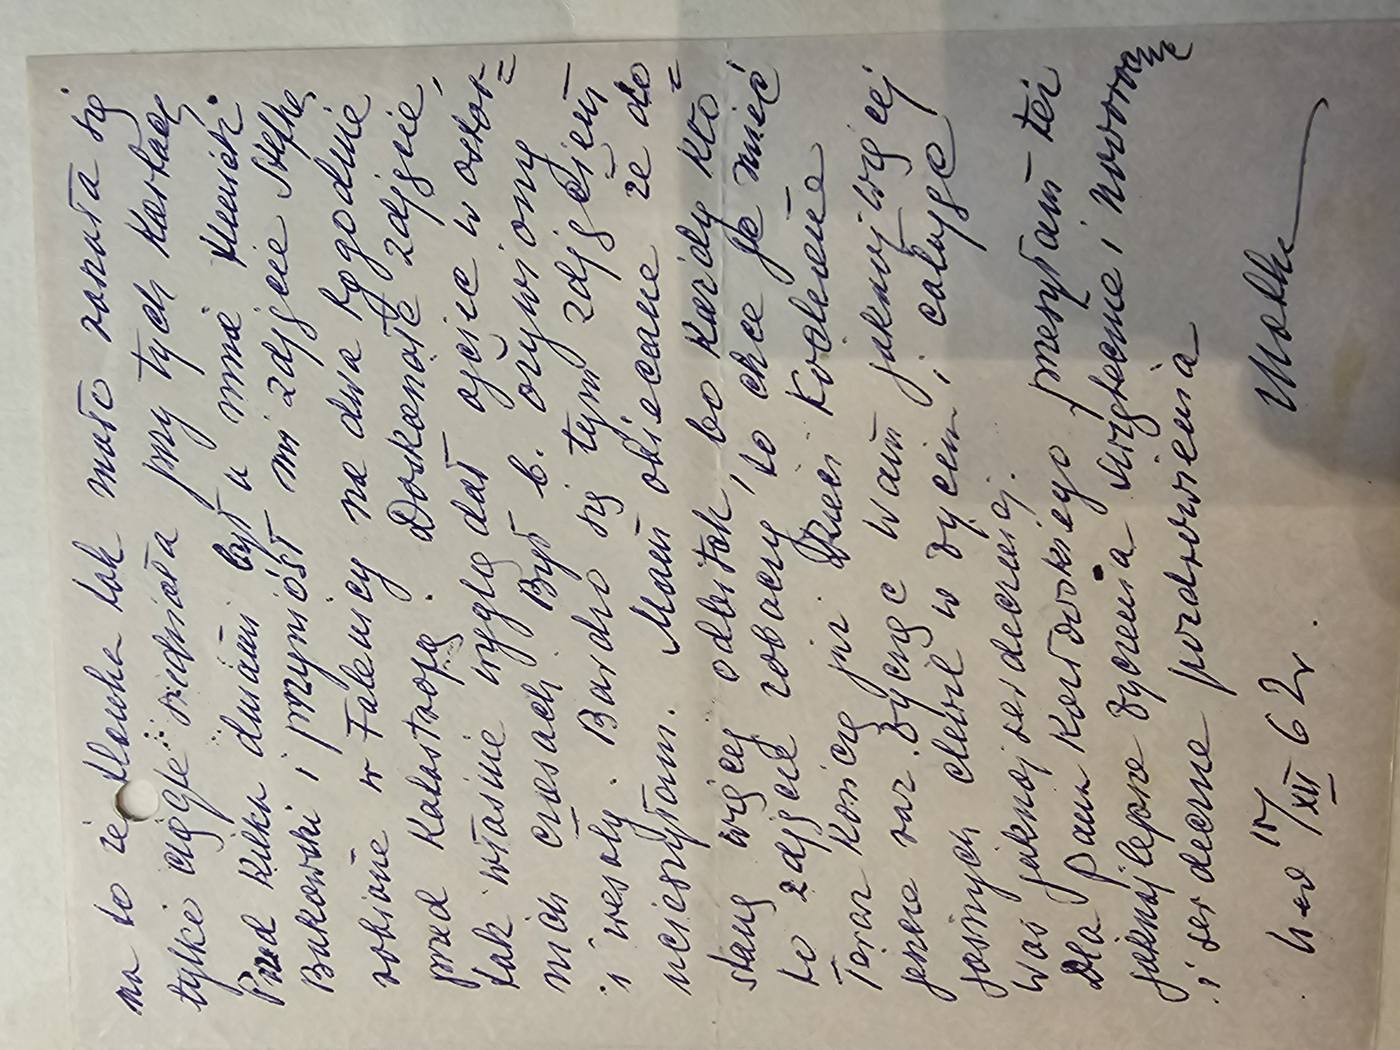 na to że Stacha tak mało zarała się
tylko ciągle siedziała przy tych kartach
Przed kilku dniami był u mnie Heniek
Bukowski i przyniósł mi zdjęcie Stefka
robione w Falenicy na dwa tygodnie
przed katastrofą. Doskonałe zdjęcie,
tak właśnie wyglądał ojciec w ostat=
nich czasach. Był b. ożywiony
i wesoły. Bardzo się tym zdjęciem
ucieszyłam. Mam obiecane że do=
stanę więcej odbitek, bo każdy kto
to zdjęcie zobaczy, to chce je mieć
Teraz kończę już. Dzieci Kochane
jeszcze raz życzę Wam jaknajwięcej
jasnych chwil w życiu i całuję
Was jaknajserdeczniej.
Dla Pana Kozłowskiego przesyłam też
jaknajlepsze życzenia świąteczne i noworoczne
i serdeczne pozdrowienia
Matka
15/XII 62r.